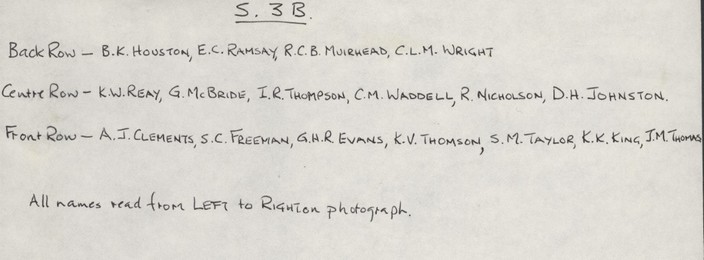 S. 3 B.
Back Row – B.K. HOUSTON, E.C. RAMSAY, R.C.B. MUIRHEAD, C.L.M. WRIGHT
Centre Row – K.W. REAY, G. McBRIDE, I.R. THOMPSON, C.M. WADDELL, R. NICHOLSON, D.H. JOHNSTON.
Front Row – A.J. CLEMENTS, S.C. FREEMAN, G.H.R. EVANS, K.V. THOMSON, S.M. TAYLOR, K.K. KING, J.M. THOMAS
All names read from LEFT to RIGHT on photograph.